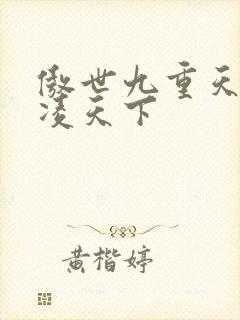 傲世九重天
凌天下
黄楷婷